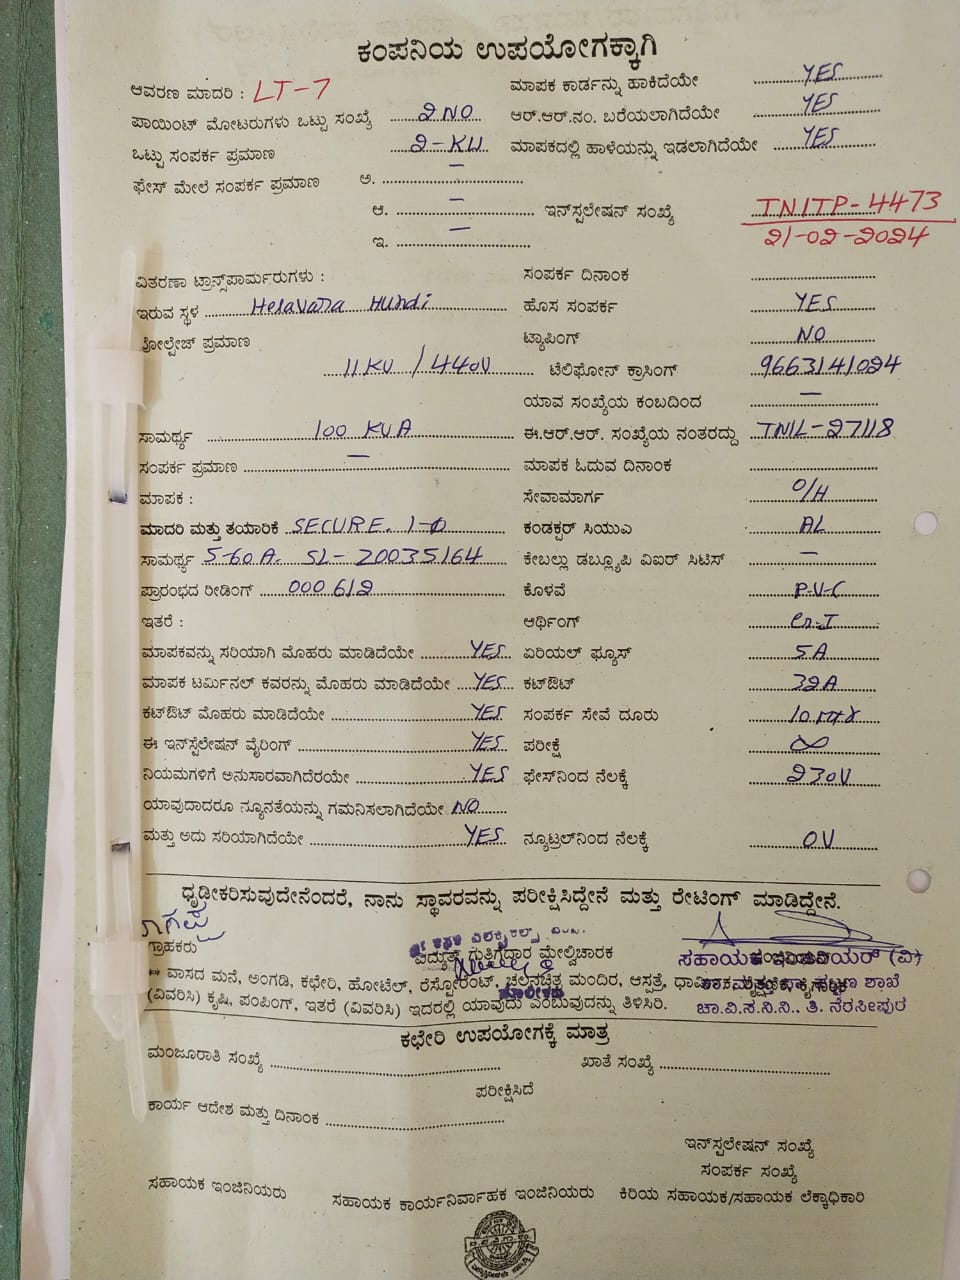 ಕಂಪನಿಯ ಉಪಯೋಗಕ್ಕಾಗಿ
ಆವರಣ ಮಾದರಿ : LT-7 ಮಾಪಕ ಕಾರ್ಡನ್ನು ಹಾಕಿದೆಯೇ YES
ಪಾಯಿಂಟ್ ಮೋಟರುಗಳು ಒಟ್ಟು ಸಂಖ್ಯೆ 2 NO ಆರ್.ಆರ್.ನಂ. ಬರೆಯಲಾಗಿದೆಯೇ YES
ಒಟ್ಟು ಸಂಪರ್ಕ ಪ್ರಮಾಣ 2-KW ಮಾಪಕದಲ್ಲಿ ಹಾಳೆಯನ್ನು ಇಡಲಾಗಿದೆಯೇ YES
ಫೇಸ್ ಮೇಲೆ ಸಂಪರ್ಕ ಪ್ರಮಾಣ ಅ. –
ಆ. – ಇನ್‌ಸ್ಟಲೇಷನ್ ಸಂಖ್ಯೆ TN1TP-4473
ಇ. – 21-02-2024
ವಿತರಣಾ ಟ್ರಾನ್ಸ್‌ಫಾರ್ಮರುಗಳು : ಸಂಪರ್ಕ ದಿನಾಂಕ
ಇರುವ ಸ್ಥಳ Helavara Hundi ಹೊಸ ಸಂಪರ್ಕ YES
ವೋಲ್ಟೇಜ್ ಪ್ರಮಾಣ ಟ್ಯಾಪಿಂಗ್ NO
11 KV / 440V ಟೆಲಿಫೋನ್ ಕ್ರಾಸಿಂಗ್ 9663141024
ಯಾವ ಸಂಖ್ಯೆಯ ಕಂಬದಿಂದ –
ಸಾಮರ್ಥ್ಯ 100 KVA ಈ.ಆರ್.ಆರ್. ಸಂಖ್ಯೆಯ ನಂತರದ್ದು TN1L-27118
ಸಂಪರ್ಕ ಪ್ರಮಾಣ – ಮಾಪಕ ಓದುವ ದಿನಾಂಕ
ಮಾಪಕ : ಸೇವಾಮಾರ್ಗ O/H
ಮಾದರಿ ಮತ್ತು ತಯಾರಿಕೆ SECURE. 1-Φ ಕಂಡಕ್ಟರ್ ಸಿಯುಎ AL
ಸಾಮರ್ಥ್ಯ 5-60A. SL- 20035164 ಕೇಬಲ್ಲು ಡಬ್ಲ್ಯೂಪಿ ವಿಐಆರ್ ಸಿಟಿಸ್ –
ಪ್ರಾರಂಭದ ರೀಡಿಂಗ್ 000612 ಕೊಳವೆ P.V.C
ಇತರೆ : ಆರ್ಥಿಂಗ್
ಮಾಪಕವನ್ನು ಸರಿಯಾಗಿ ಮೊಹರು ಮಾಡಿದೆಯೇ YES ಏರಿಯಲ್ ಫ್ಯೂಸ್ 5A
ಮಾಪಕ ಟರ್ಮಿನಲ್ ಕವರನ್ನು ಮೊಹರು ಮಾಡಿದೆಯೇ YES ಕಟ್‌ಔಟ್ 32A
ಕಟ್‌ಔಟ್ ಮೊಹರು ಮಾಡಿದೆಯೇ YES ಸಂಪರ್ಕ ಸೇವೆ ದೂರು
ಈ ಇನ್‌ಸ್ಟೆಲೇಷನ್ ವೈರಿಂಗ್ YES ಪರೀಕ್ಷೆ ∞
ನಿಯಮಗಳಿಗೆ ಅನುಸಾರವಾಗಿದೆರಯೇ YES ಫೇಸ್‌ನಿಂದ ನೆಲಕ್ಕೆ 230V
ಯಾವುದಾದರೂ ನ್ಯೂನತೆಯನ್ನು ಗಮನಿಸಲಾಗಿದೆಯೇ NO
ಮತ್ತು ಅದು ಸರಿಯಾಗಿದೆಯೇ YES ನ್ಯೂಟ್ರಲ್‌ನಿಂದ ನೆಲಕ್ಕೆ 0V
ಧೃಢೀಕರಿಸುವುದೇನೆಂದರೆ, ನಾನು ಸ್ಥಾವರವನ್ನು ಪರೀಕ್ಷಿಸಿದ್ದೇನೆ ಮತ್ತು ರೇಟಿಂಗ್ ಮಾಡಿದ್ದೇನೆ.
ಗ್ರಾಹಕರು ವಿದ್ಯುತ್ ಗುತ್ತಿಗೆದಾರ ಮೇಲ್ವಿಚಾರಕ
** ವಾಸದ ಮನೆ, ಅಂಗಡಿ, ಕಛೇರಿ, ಹೋಟೆಲ್, ರೆಸ್ಟೋರೆಂಟ್, ಚಲನಚಿತ್ರ ಮಂದಿರ, ಆಸ್ಪತ್ರೆ,
(ವಿವರಿಸಿ) ಕೃಷಿ, ಪಂಪಿಂಗ್, ಇತರೆ (ವಿವರಿಸಿ) ಇದರಲ್ಲಿ ಯಾವುದು ಎಂಬುವುದನ್ನು ತಿಳಿಸಿರಿ. ಚಾ.ವಿ.ಸ.ನಿ.ನಿ., ತಿ. ನರಸೀಪುರ
ಕಛೇರಿ ಉಪಯೋಗಕ್ಕೆ ಮಾತ್ರ
ಮಂಜೂರಾತಿ ಸಂಖ್ಯೆ ಖಾತೆ ಸಂಖ್ಯೆ
ಪರೀಕ್ಷಿಸಿದೆ
ಕಾರ್ಯ ಆದೇಶ ಮತ್ತು ದಿನಾಂಕ
ಇನ್‌ಸ್ಟಲೇಷನ್ ಸಂಖ್ಯೆ
ಸಂಪರ್ಕ ಸಂಖ್ಯೆ
ಸಹಾಯಕ ಇಂಜಿನಿಯರು ಸಹಾಯಕ ಕಾರ್ಯನಿರ್ವಾಹಕ ಇಂಜಿನಿಯರು ಕಿರಿಯ ಸಹಾಯಕ/ಸಹಾಯಕ ಲೆಕ್ಕಾಧಿಕಾರಿ